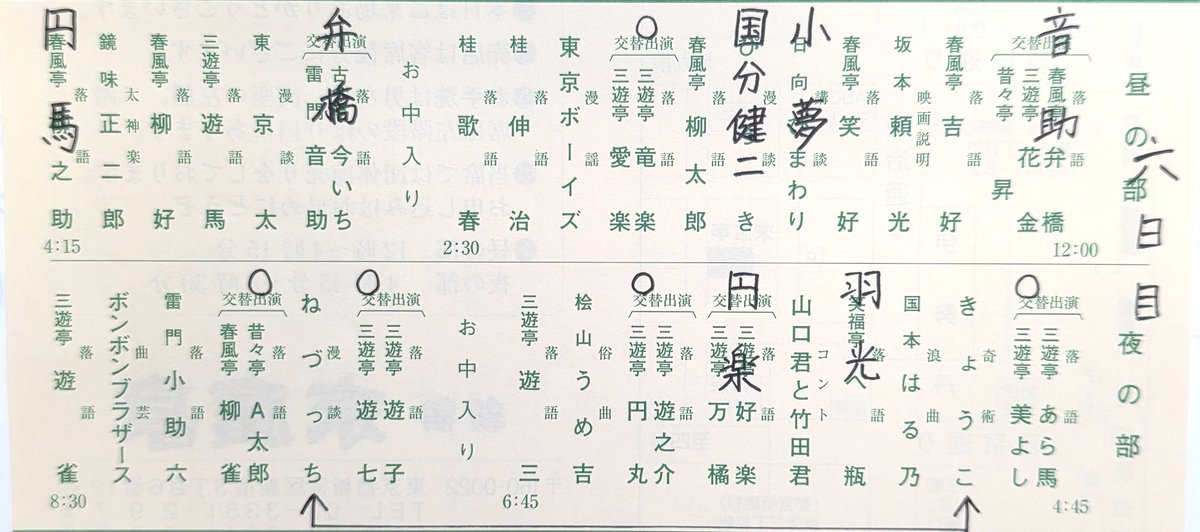 六日目
昼の部
12:00
交替出演
音助
落語
春風亭弁橋
三遊亭花金
昔々亭昇
落語
春風亭吉好
映画説明
坂本頼光
落語
春風亭笑好
小夢
講談
日向ひまわり
国分健二
漫談
落語
春風亭柳太郎
○
交替出演
落語
三遊亭竜楽
三遊亭愛楽
漫謡
東京ボーイズ
落語
桂伸治
落語
桂歌春
2:30
お中入り
弁橋
交替出演
落語
古今亭今いち
雷門音助
漫談
東京太
落語
三遊亭遊馬
落語
春風亭柳好
太神楽
鏡味正二郎
円馬
落語
春風亭 之助
4:15
夜の部
4:45
○
交替出演
落語
三遊亭あら馬
三遊亭美よし
奇術
きょうこ
浪曲
国本はる乃
羽光
落語
笑福亭べ瓶
コント
山口君と竹田君
円楽
交替出演
落語
三遊亭好楽
三遊亭万橘
○
交替出演
落語
三遊亭遊之介
三遊亭円丸
俗曲
桧山うめ吉
落語
三遊亭遊三
6:45
お中入り
○
交替出演
落語
三遊亭遊子
三遊亭遊七
漫談
ねづっち
○
交替出演
落語
昔々亭A太郎
春風亭柳雀
落語
雷門小助六
曲芸
ボンボンブラザース
落語
三遊亭遊雀
8:30